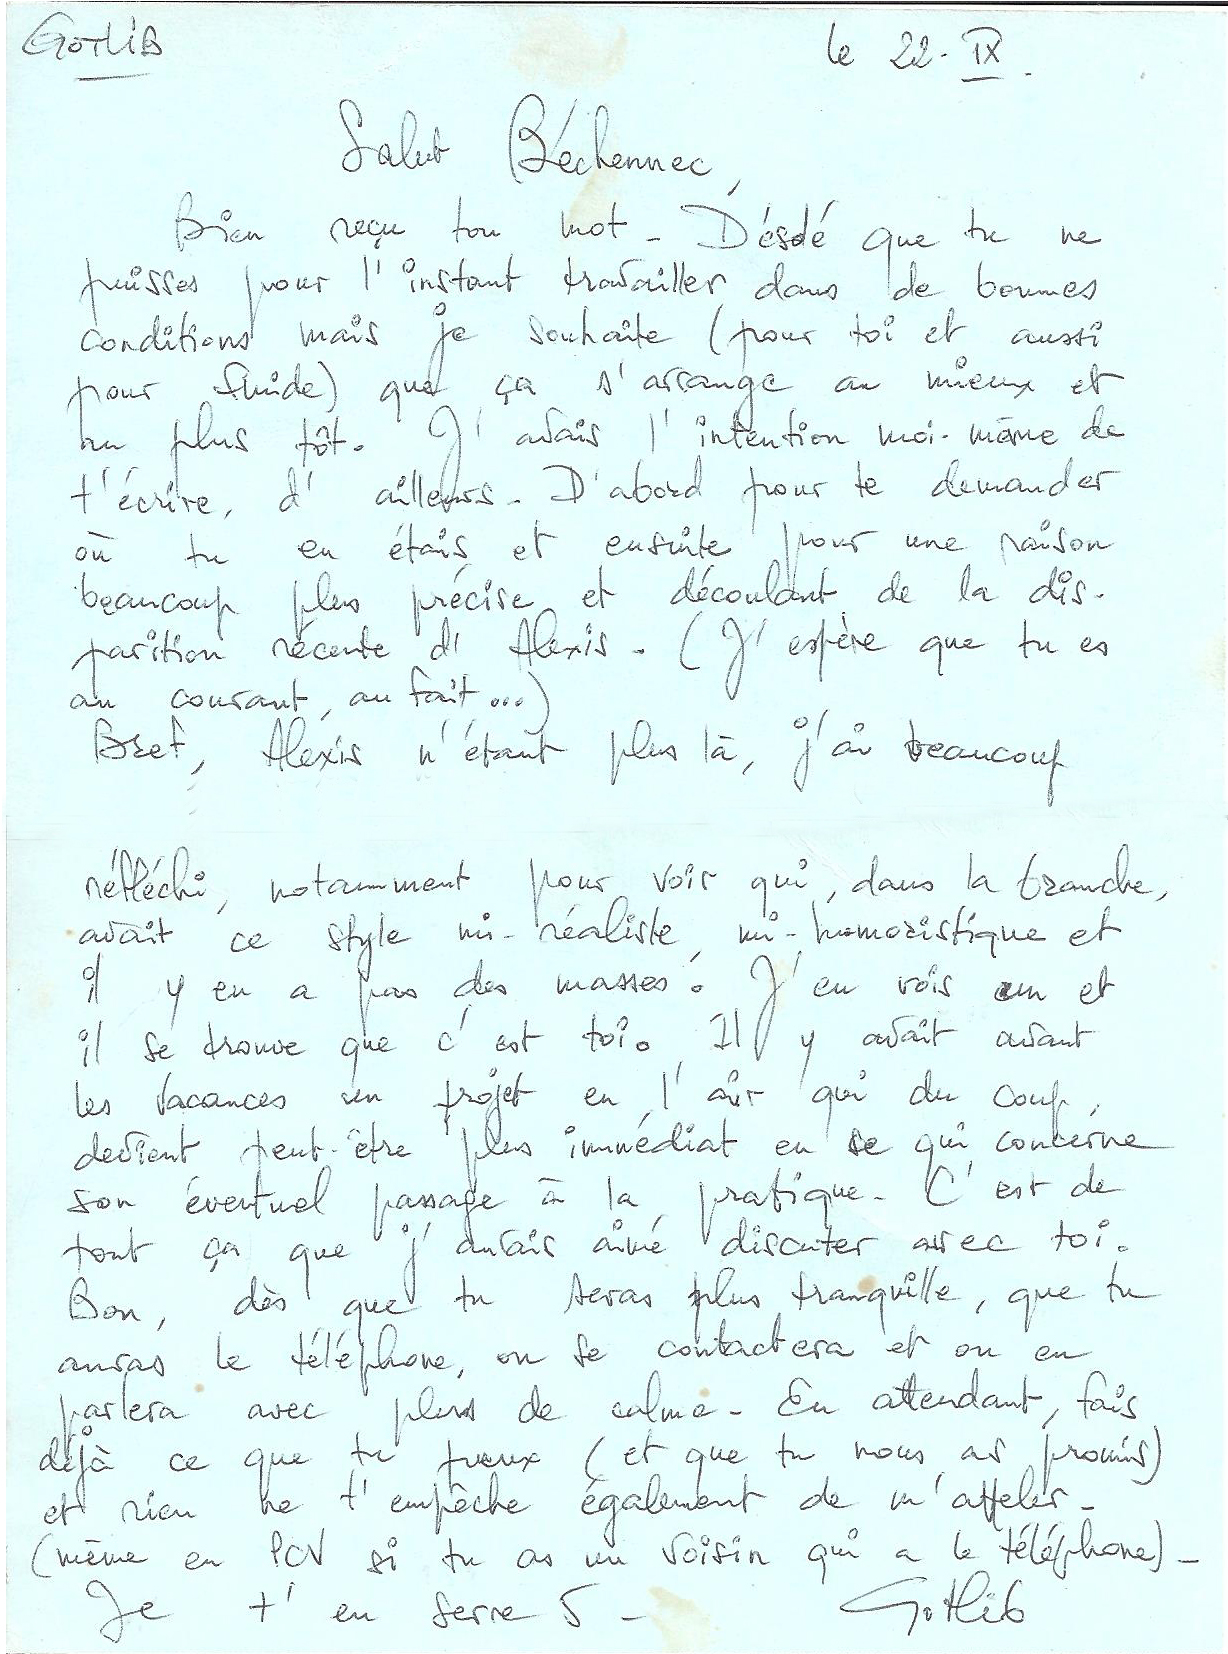 GOTLIB
le 22-IX.
Salut Béchennec,
Bien reçu ton mot - Désolé que tu ne
puisses pour l'instant travailler dans de bonnes
conditions mais je souhaite (pour toi et aussi
pour fluide) que ça s'arrange au mieux et
au plus tôt. J'avais l'intention moi-même de
t'écrire, d'ailleurs - D'abord pour te demander
où tu en étais et ensuite pour une raison
beaucoup plus précise et découlant de la dis-
parition récente d'Alexis - (J'espère que tu es
au courant, au fait...)
Bref, Alexis n'étant plus là, j'ai beaucoup
réfléchi, notamment pour voir qui, dans la branche,
avait ce style mi-réaliste, mi-humoristique et
il y en a pas des masses. J'en vois un et
il se trouve que c'est toi. Il y avait avant
les vacances un projet en l'air qui du coup,
devient peut-être plus immédiat en se qui concerne
son éventuel passage à la pratique - C'est de
tout ça que j'aurais aimé discuter avec toi.
Bon, dès que tu seras plus tranquille, que tu
auras le téléphone, on se contactera et on en
parlera avec plus de calme - En attendant, fais
déjà ce que tu peux (et que tu nous as promis)
et rien ne t'empêche également de m'appeler -
(même en PCV si tu as un voisin qui a le téléphone) -
Je t'en serre 5 - Gotlib